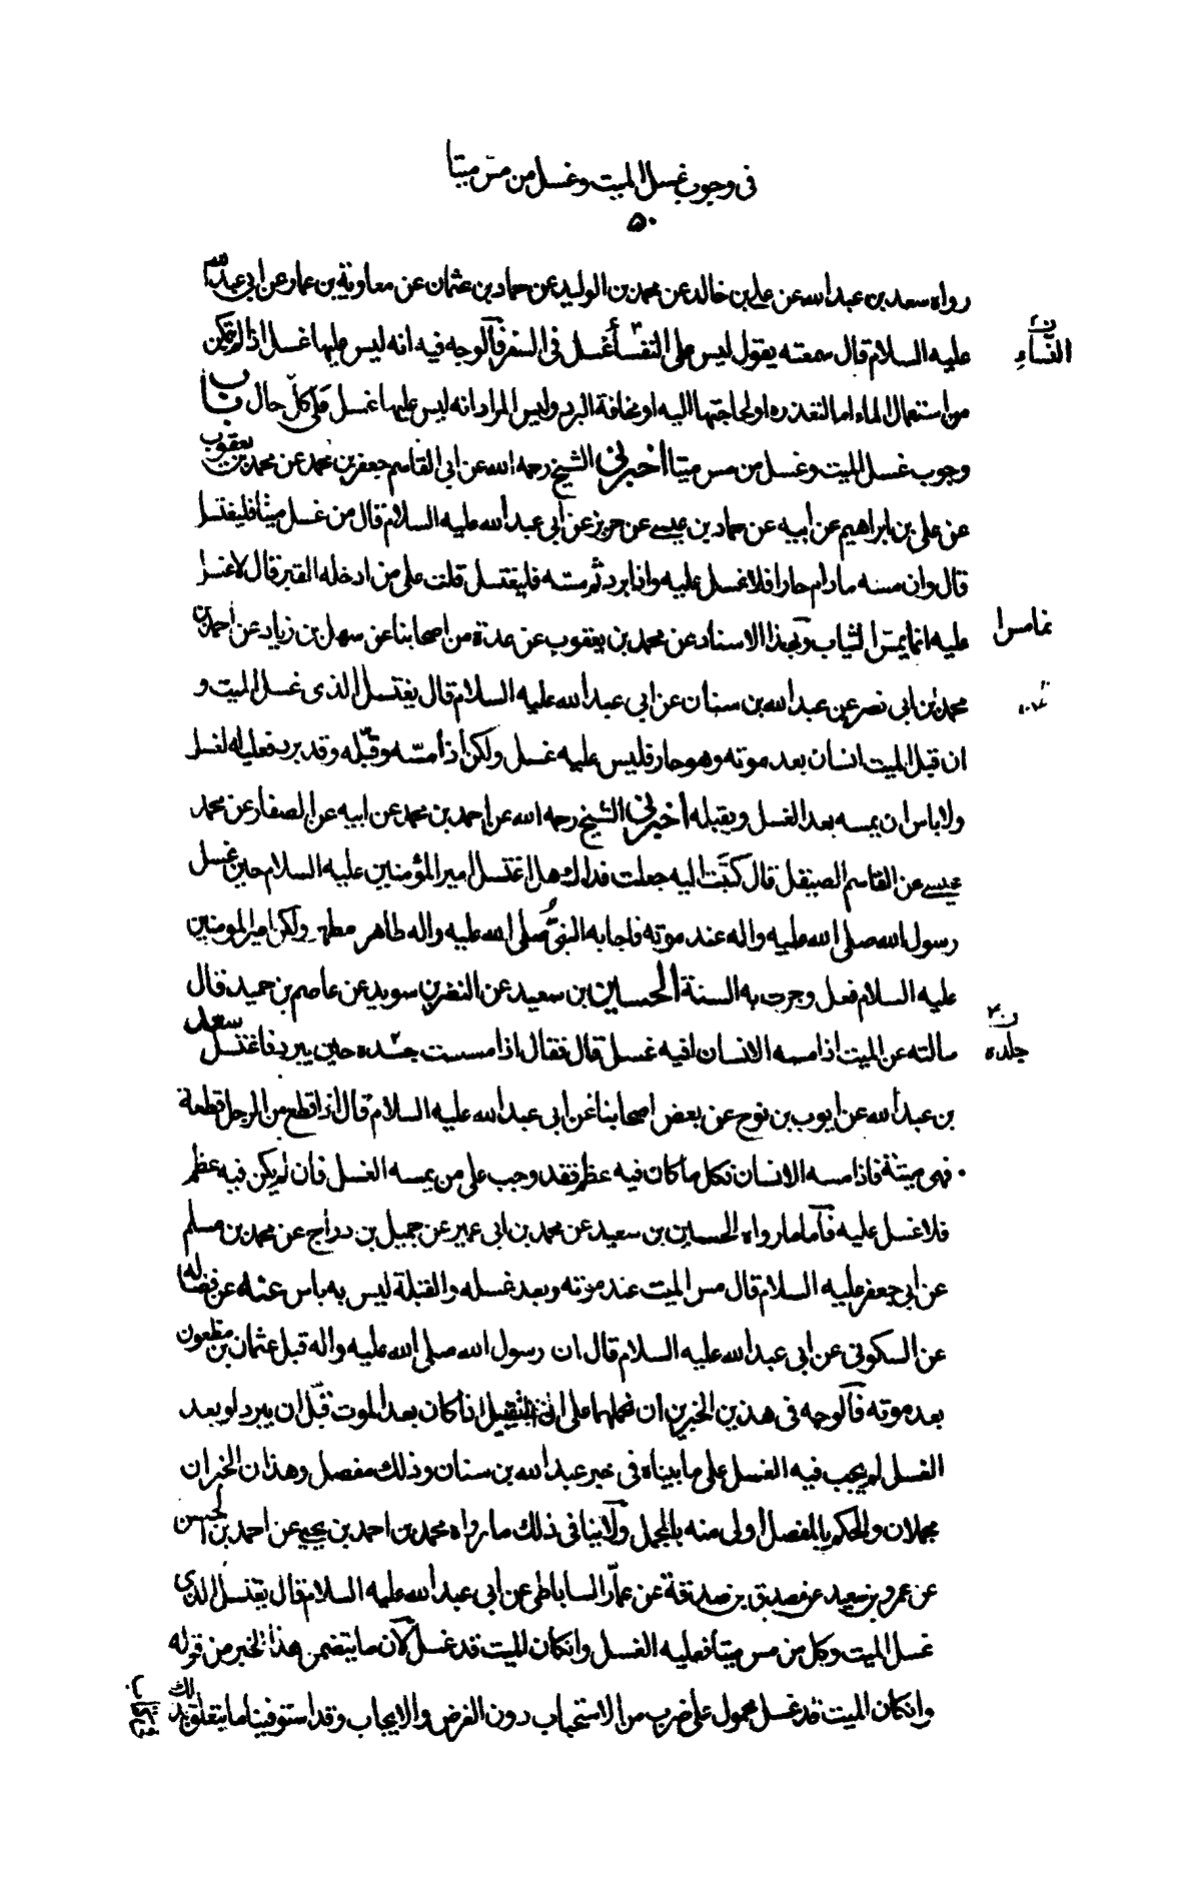 فى وجوب غسل الميت وغسل من مسّ ميتا
٥٠
رواه سعد بن عبد الله عن على بن خالد عن محمد بن الوليد عن حماد بن عثمان عن معاوية بن عمار عن ابى عبد الله
عليه السلام قال سمعته يقول ليس على النفسأ غسل فى السفر فالوجه فيه انه ليس عليها غسل اذا لم تتمكن
النساءِ
من استعمال الماء اما لتعذره او لحاجتها اليه او مخافة البرد وليس المراد انه ليس عليها غسل على كلّ حال باب
وجوب غسل الميت وغسل من مس ميتا اخبرنى الشيخ رحمه الله عن ابى القاسم جعفر بن محمد عن محمد بن يعقوب
عن على بن ابراهيم عن ابيه عن حماد بن عيسى عن حريز عن أبى عبد الله عليه السلام قال من غسل ميتا فليغتسل
قال وان مسه ما دام حارا فلا غسل عليه واذا برد ثم مسّه فليغتسل قلت على من ادخله القبر قال لا غسل
عليه انما يمسّ الثياب وبهذا الاسناد عن محمد بن يعقوب عن عدة من اصحابنا عن سهل بن زياد عن احمد بن
محمد بن ابى نصر عن عبد الله بن سنان عن ابى عبد الله عليه السلام قال يغتسل الذى غسل الميت و
ان قبل الميت انسان بعد موته وهو حار فليس عليه غسل ولكن اذا مسّه وقبّله وقد برد فعليه الغسل
ولا باس ان يمسه بعد الغسل ويقبله اخبرنى الشيخ رحمه الله عن احمد بن محمد عن ابيه عن الصفار عن محمد
عيسى عن القاسم الصيقل قال كتبت اليه جعلت فداك هل اغتسل امير المؤمنين عليه السلام حين غسل
رسول الله صلى الله عليه واله عند موته فاجابه النبىّ صلى الله عليه واله طاهر مطهر ولكن امير المومنين
عليه السلام فعل وجرت به السنة الحسين بن سعيد عن النضر بن سويد عن عاصم بن حميد قال
سالته عن الميت اذا مسه الانسان افيه غسل قال فقال اذا مسست جسده حين يبرد فاغتسل سعد
جلده
بن عبد الله عن ايوب بن نوح عن بعض اصحابنا عن ابى عبد الله عليه السلام قال اذا قطع من الرجل قطعة
فهى ميتة فاذا مسه الانسان فكل ما كان فيه عظم فقد وجب على من يمسه الغسل فان لم يكن فيه عظم
فلا غسل عليه فاما ما رواه الحسين بن سعيد عن محمد بن ابى عمير عن جميل بن دراج عن محمد بن مسلم
عن ابى جعفر عليه السلام قال مس الميت عند موته وبعد غسله والقبلة ليس به باس عنه عن فضاله
عن السكونى عن ابى عبد الله عليه السلام قال ان رسول الله صلى الله عليه واله قبل عثمان بن مظعون
بعد موته فالوجه فى هذين الخبرين ان نحملهما على ان التقبيل اذا كان بعد الموت قبل ان يبرد او بعد
الغسل لم يجب فيه الغسل على ما بيناه فى خبر عبد الله بن سنان وذلك مفصل وهذان الخبران
مجملان والحكم بالمفصل اولى منه بالمجمل ولا ينافى ذلك ما رواه محمد بن احمد بن يحيى عن احمد بن الحسن
عن عمرو بن سعيد عن مصدق بن صدقة عن عمّار الساباطى عن ابى عبد الله عليه السلام قال يغتسل الذى
غسل الميت وكل من مس ميتا فعليه الغسل وان كان الميت قد غسل لان ما يتضمن هذا الخبر من قوله
وان كان الميت قد غسل محمول على ضرب من الاستحباب دون الفرض والايجاب وقد استوفينا ما يتعلق بذلك